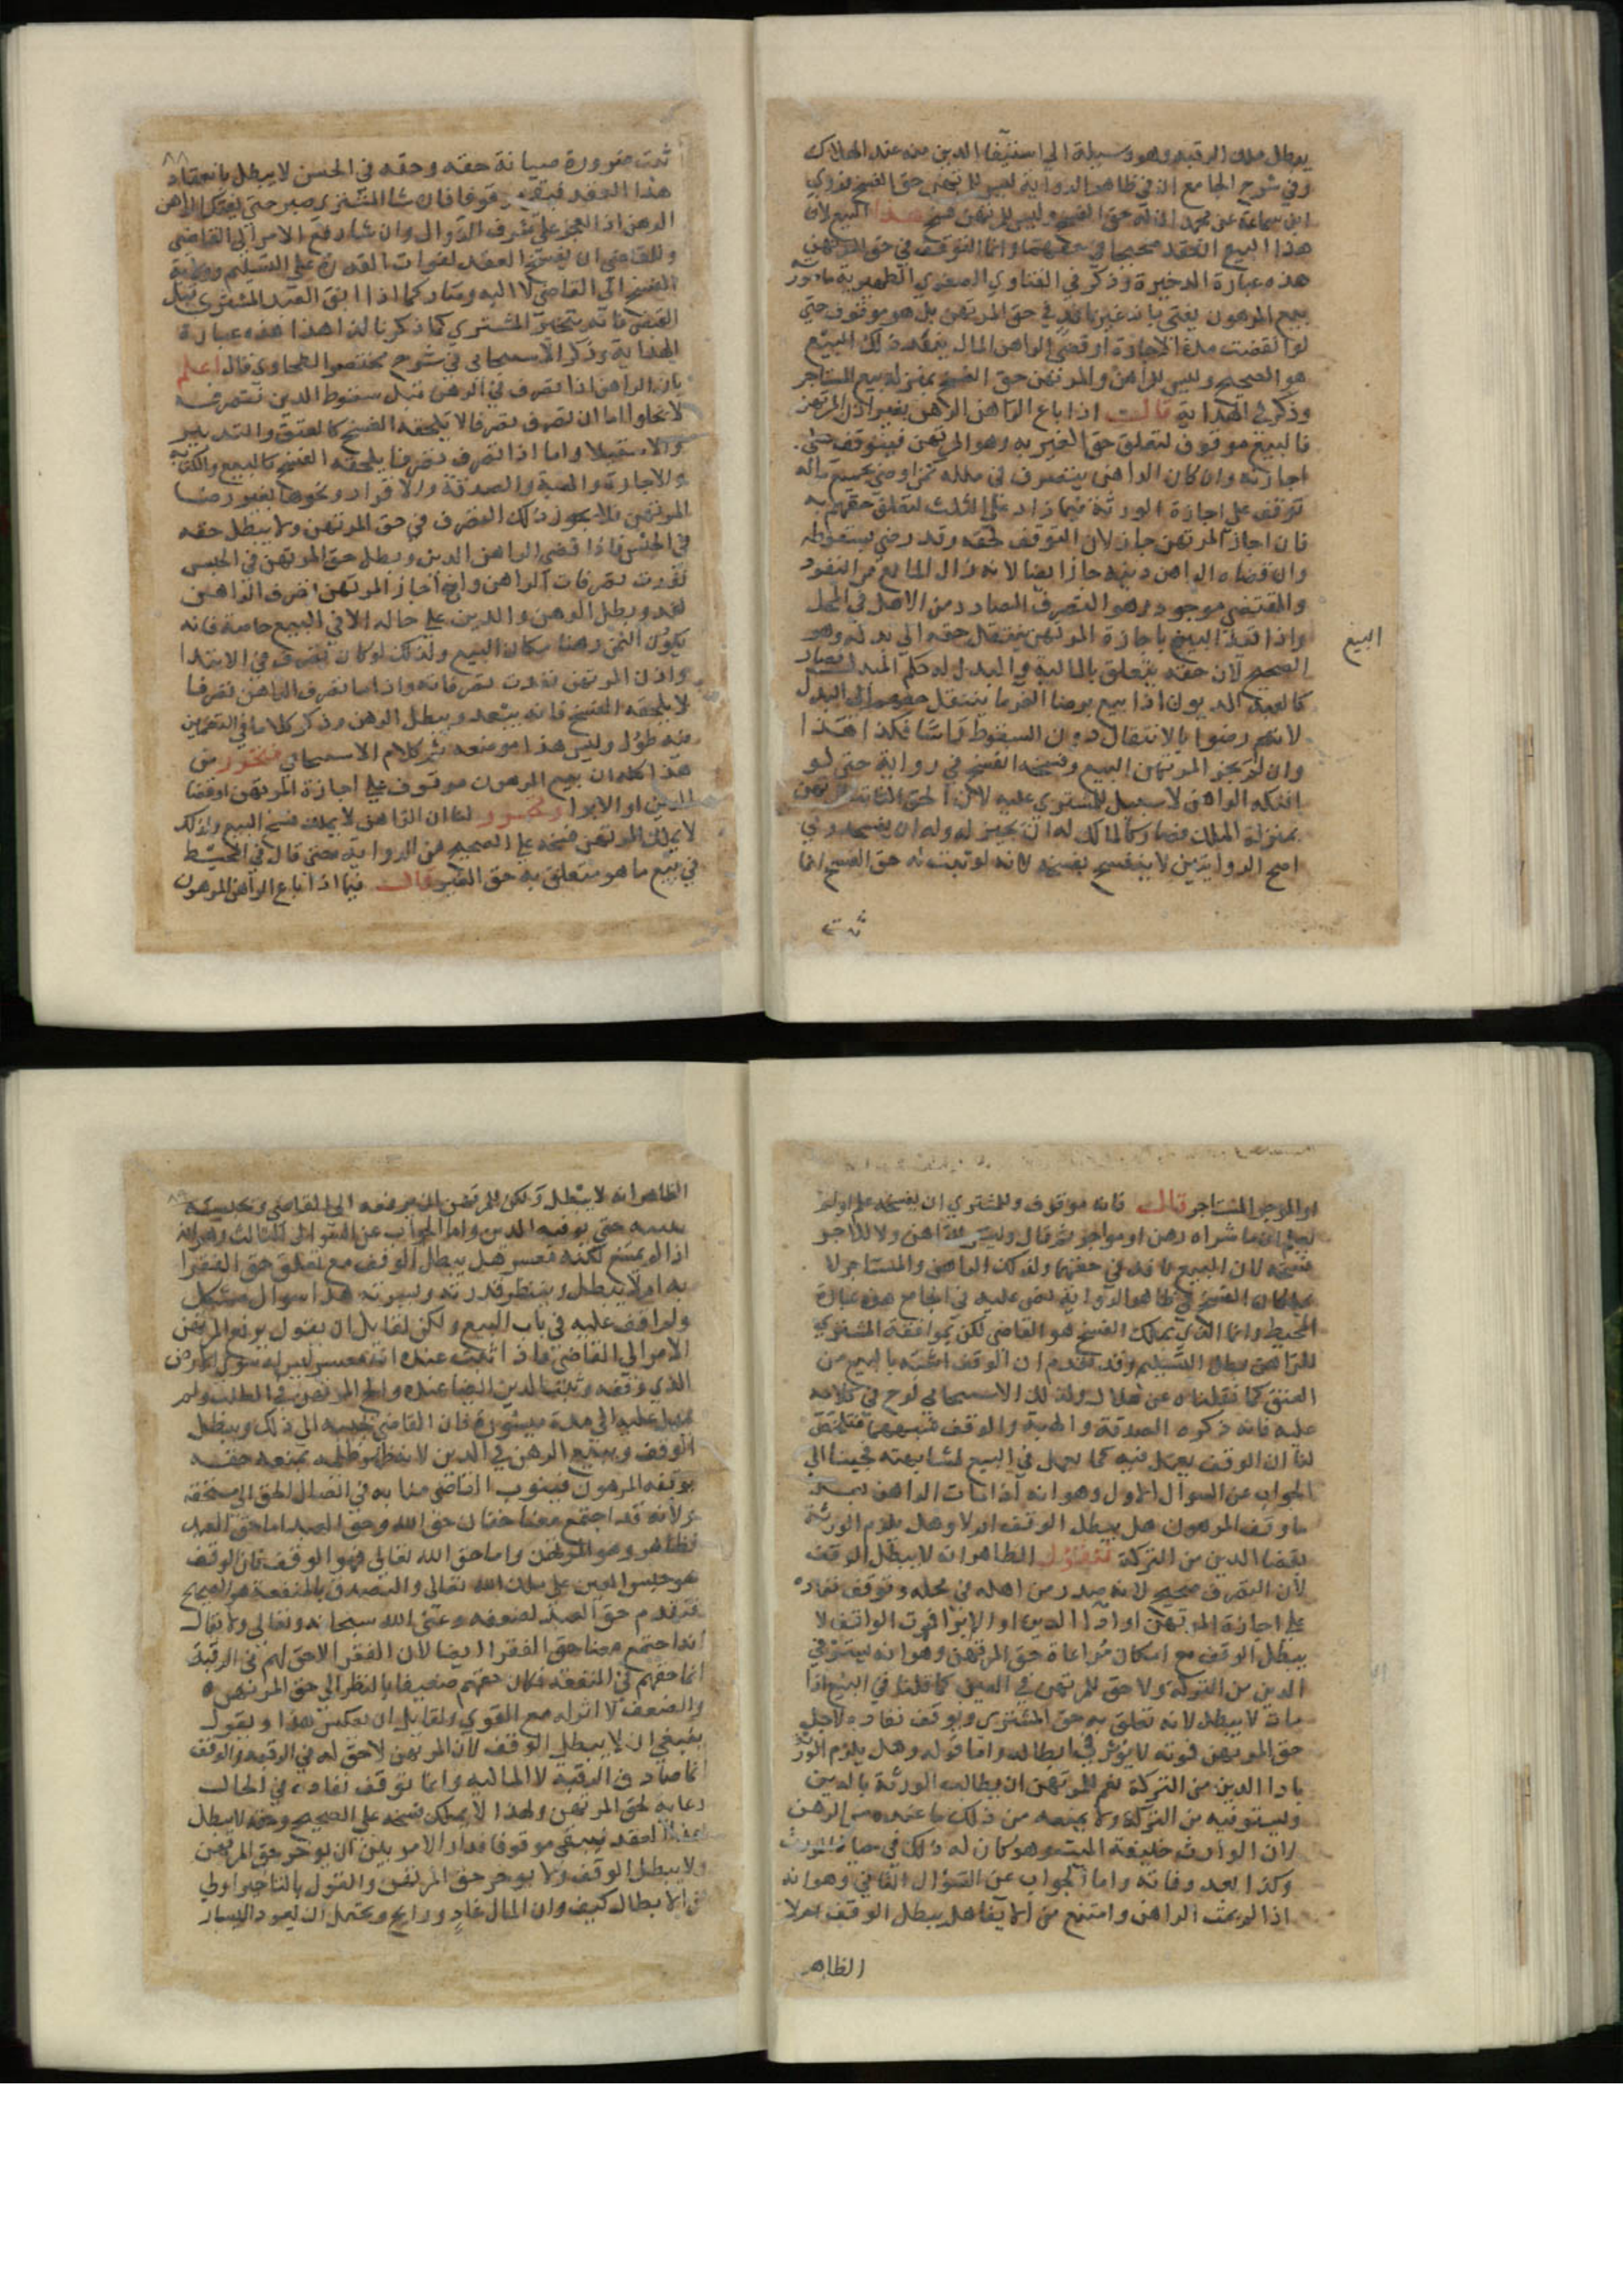 يبطل ملك الرقبة وهو وسيلة الي استيفا الدين منه عند الهلاك
وفي شرح الجامع ان في ظاهر الرواية ليس للمرتهن حق الفسخ وروي
ابن سماعة عن محمد ان له حق الفسخ وليس للرتهن فسخ هذا البيع لان
هذا البيع انعقد صحيحا في حقهما وانما التوقف في حق المرتهن
هذه عبارة الدخيرة وذكر في الفتاوي الصغري الظهيرية
بيع المرهون يفتي بانه غير نافذ في حق المرتهن بل هو موقوف حتي
لو انقضت مدة الاجازة او قضي الراهن المال ينفذ ذلك البيع
هو الصحيح وليس للراهن والمرتهن حق الفسخ بمنزلة بيع المستاجر
وذكر في الهداية قالت اذا باع الراهن الرهن بغير اذن المرتهن
فالبيع موقوف لتعلق حق الغير به وهو المرتهن فيتوقف علي
اجازته وان كان الراهن يتصرف في ملكه كمن اوصي بجميع ماله
توقف علي اجازة الورثة فيما زاد علي الثلث لتعلق حقهم به
فان اجاز المرتهن جاز لان التوقف لحقه وقد رضي بسقوطه
وان قضاه الراهن دينه جاز ايضا لانه زال المانع من النفوذ
والمقتضي موجود وهو التصرف الصادر من الاهل في المحل
واذا نفذ البيع باجازة المرتهن ينتقل حقه الي بدله وهو
الصحيح لان حقه يتعلق بالمالية والبدل له حكم المبدل فصار
كالعبد المديون اذا بيع برضا الغرما ينتقل حقهم الي البدل
لانهم رضوا بالانتقال دون السقوط راسا فكذا هذا
وان لم يجز المرتهن البيع وفسخه انفسخ في رواية حتي لو
افتكه الراهن لا سبيل للمشتري عليه لان الحق الثابت للمرتهن
بمنزلة الملك فصار كالمالك له ان يجيز له وله ان يفسخ وفي
اصح الروايتين لا ينفسخ بفسخه لانه لو ثبت له حق الفسخ انما
ثبت
البيع
ثبت ضرورة صيانة حقه وحقه في الحبس لا يبطل بانعقاد
هذا العقد فبقي موقوفا فان شا المشتري صبر حتي يفتك الراهن
الرهن اذ العجز علي شرف الزوال وان شا رفع الامر الي القاضي
وللقاضي ان يفسخ العقد لفوات القدرة علي التسليم وولاية
الفسخ الي القاضي لا اليه وصار كما اذا ابق العبد المشتري قبل
القبض فانه يتخير المشتري كما ذكرنا لذا هذا هذه عبارة
الهداية وذكر الاسبيجابي في شرح مختصر الطحاوي قال اعلم
بان الراهن اذا تصرف في الرهن قبل سقوط الدين تصرفه
لا يخلو اما ان تصرف تصرفا لا يلحقه الفسخ كالعتق والتدبير
والاستيلاد واما اذا تصرف تصرفا يلحقه الفسخ كالبيع والكتابة
والاجارة والهبة والصدقة والاقرار ونحوها بغير رضا
المرتهن فلا يجوز ذلك التصرف في حق المرتهن ولا يبطل حقه
في الحبس فاذا قضي الراهن الدين وبطل حق المرتهن في الحبس
نفذت تصرفات الراهن وان اجاز المرتهن تصرف الراهن
نفذ وبطل الرهن والدين علي حاله الا في البيع خاصة فانه
يكون الثمن رهنا مكان البيع ولذلك لو كان تصرف في الابتدا
واذن المرتهن نفذت تصرفاته واذا ما تصرف الراهن تصرفا
لا يلحقه الفسخ فانه ينفذ ويبطل الرهن وذكر كلاما في التضمين
فيه طول وليس هذا موضعه تم كلام الاسبيجابي فتحرر من
هذا كله ان بيع المرهون موقوف علي اجازة المرتهن او قضا
الدين او الابرا وتحرر لنا ان الراهن لا يملك فسخ البيع وكذلك
لا يملك المرتهن فسخه علي الصحيح من الرواية مضي قال في المحيط
في بيع ما هو متعلق به حق الغير قال فيما اذا باع الراهن المرهون
او الموجر المستاجر قالت فانه موقوف وللمشتري ان يفسخه علم او لم
يعلم ان ما شراه رهن او مواجر ثم قال وليس للراهن ولا للاجر
فسخه لان البيع نافذ في حقهما ولذلك الراهن والمستاجر لا
يملكان الفسخ في ظاهر الرواية نص عليه في الجامع هذه عبارة
المحيط وانما الذي يملك الفسخ هو القاضي لكن بموافقة المشتري
للراهن وطلب التسليم وقد تقدم ان الوقف اشبه بالبيع من
العتق كما نقلناه عن هلال ولذلك الاسبيجابي لوح في كلامه
عليه فانه ذكره الصدقة والهبة والوقف شبههما فتلخص
لنا ان الوقف يعمل فيه كما يعمل في البيع لمشابهته فجينا الي
الجواب عن السوال الاول وهو انه اذا مات الراهن بعد
ما وقف المرهون هل يبطل الوقف ام لا وهل يلزم الورثة
بقضا الدين من التركة فنقول الظاهر انه لا يبطل الوقف
لان التصرف صحيح لانه صدر من اهله في محله وتوقف نفاذه
علي اجازة المرتهن او ادا الدين او الابرا فموت الواقف لا
يبطل الوقف مع امكان مراعاة حق المرتهن وهو انه يستوفي
الدين من التركة ولا حق للمرتهن في العين كما قلنا في البيع اذا
مات لا يبطل لانه تعلق به حق المشتري ويوقف نفاذه لاجل
حق المرتهن فموته لا يؤثر في ابطاله واما قوله وهل يلزم الورثة
بادا الدين من التركة نعم للمرتهن ان يطالب الورثة بالدين
ويستوفيه من التركة ولا يمنعه من ذلك ما عنده من الرهن
لان الوارث خليفة الميت وهو كان له ذلك في حياة المورث
وكذا بعد وفاته واما الجواب عن السؤال الثاني وهو انه
اذا لم يمت الراهن وامتنع من الايفا هل يبطل الوقف ام لا
الظاهر
الظاهر انه لا يبطل ولكن للمرتهن ان يرفعه الي القاضي وبحبسه
حتي يوفيه الدين واما الجواب عن السوال الثالث وهو انه
اذا لم يمتنع لكنه معسر هل يبطل الوقف مع تعلق حق الفقرا
به ام لا يبطل وينتظر قدرته وليسرته هذا سوال مشكل
ولم اقف عليه في باب البيع ولكن لقايل ان يقول يرفع المرتهن
الامر الي القاضي فاذا اثبت عنده انه معسر ليس له سوي الارض
الذي وقفه وثبت الدين ايضا عنده والح المرتهن في الطلب ولم
يمهل عليه الي مدة ميسورة فان القاضي يجيبه الي ذلك ويبطل
الوقف ويبيع الرهن في الدين لانه ظهر ظلمه بمنعه حقه
بوقفه المرهون فينوب القاضي منابه في ايصال الحق الي مستحقه
ولانه قد اجتمع معنا حقان حق الله وحق العبد اما حق العبد
فظاهر وهو المرتهن واما حق الله تعالي فهو الوقف فان الوقف
هو حبس العين علي ملك الله تعالي والتصدق بالمنفعة هو الصحيح
فيقدم حق العبد لضعفه وغني الله سبحانه وتعالي ولا يقال
انه اجتمع معنا حق الفقرا ايضا لان الفقرا لا حق لهم في الرقبة
انما حقهم في المنفعة فكان حقهم ضعيفا بالنظر الي حق المرتهن
والضعف لا اثر له مع القوي ولقايل ان يعكس هذا ويقول
ينبغي ان لا يبطل الوقف لان المرتهن لا حق له في الرقبة والوقف
انما صادف الرقبة لا المالية وانما توقف نفاذه في الحال
رعاية لحق المرتهن ولهذا لا يملك فسخه علي الصحيح وحقه لا يبطل
بهذا العقد فيبقي موقوفا فدار الامر بين ان يوخر حق المرتهن
ولا يبطل الوقف ولا يوخر حق المرتهن والقول بالتاخير اولي
من الابطال كيف وان المال غاد ورايح ويحتمل ان يعود اليسار